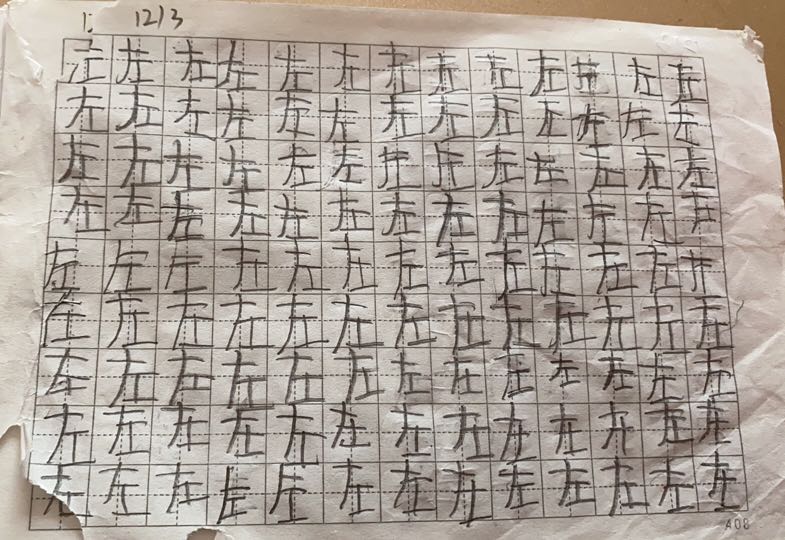 12/3
左左左左左左左左左左左左左
左左左左左左左左左左左左左
左左左左左左左左左左左左左
左左左左左左左左左左左左左
左左左左左左左左左左左左左
左左左左左左左左左左左左左
左左左左左左左左左左左左左
左左左左左左左左左左左左左
左左左左左左左左左左左左左
A08